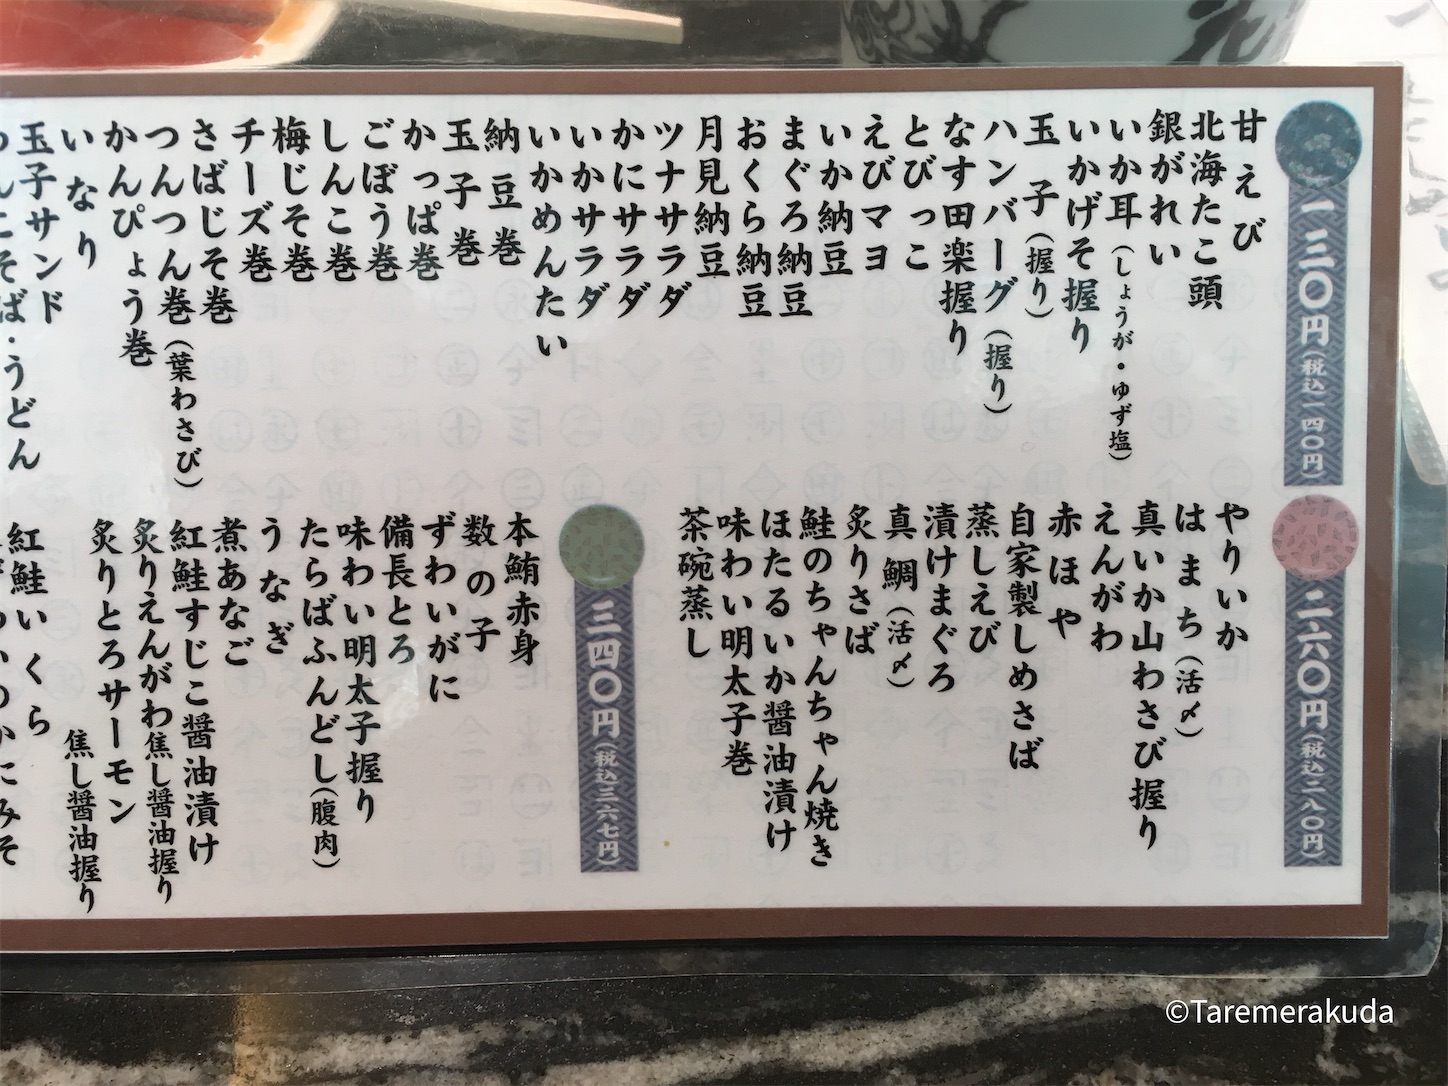 一三〇円(税込一四〇円)
甘えび
北海たこ頭
銀がれい
いか耳(しょうが・ゆず塩)
いかげそ握り
玉子(握り)
ハンバーグ(握り)
なす田楽握り
とびっこ
えびマヨ
いか納豆
まぐろ納豆
おくら納豆
月見納豆
ツナサラダ
かにサラダ
いかサラダ
いかめんたい
納豆巻
玉子巻
かっぱ巻
ごぼう巻
しんこ巻
梅じそ巻
チーズ巻
さばじそ巻
つんつん巻(葉わさび)
かんぴょう巻
いなり
玉子サンド
そば・うどん
二六〇円(税込二八〇円)
やりいか
はまち(活〆)
真いか山わさび握り
えんがわ
赤ほや
自家製しめさば
蒸しえび
漬けまぐろ
真鯛(活〆)
炙りさば
鮭のちゃんちゃん焼き
ほたるいか醤油漬け
味わい明太子巻
茶碗蒸し
三四〇円(税込三六七円)
本鮪赤身
数の子
ずわいがに
備長とろ
味わい明太子握り
たらばふんどし(腹肉)
うなぎ
煮あなご
紅鮭すじこ醤油漬け
炙りえんがわ焦し醤油握り
炙りとろサーモン焦し醤油握り
紅鮭いくら
©Taremerakuda